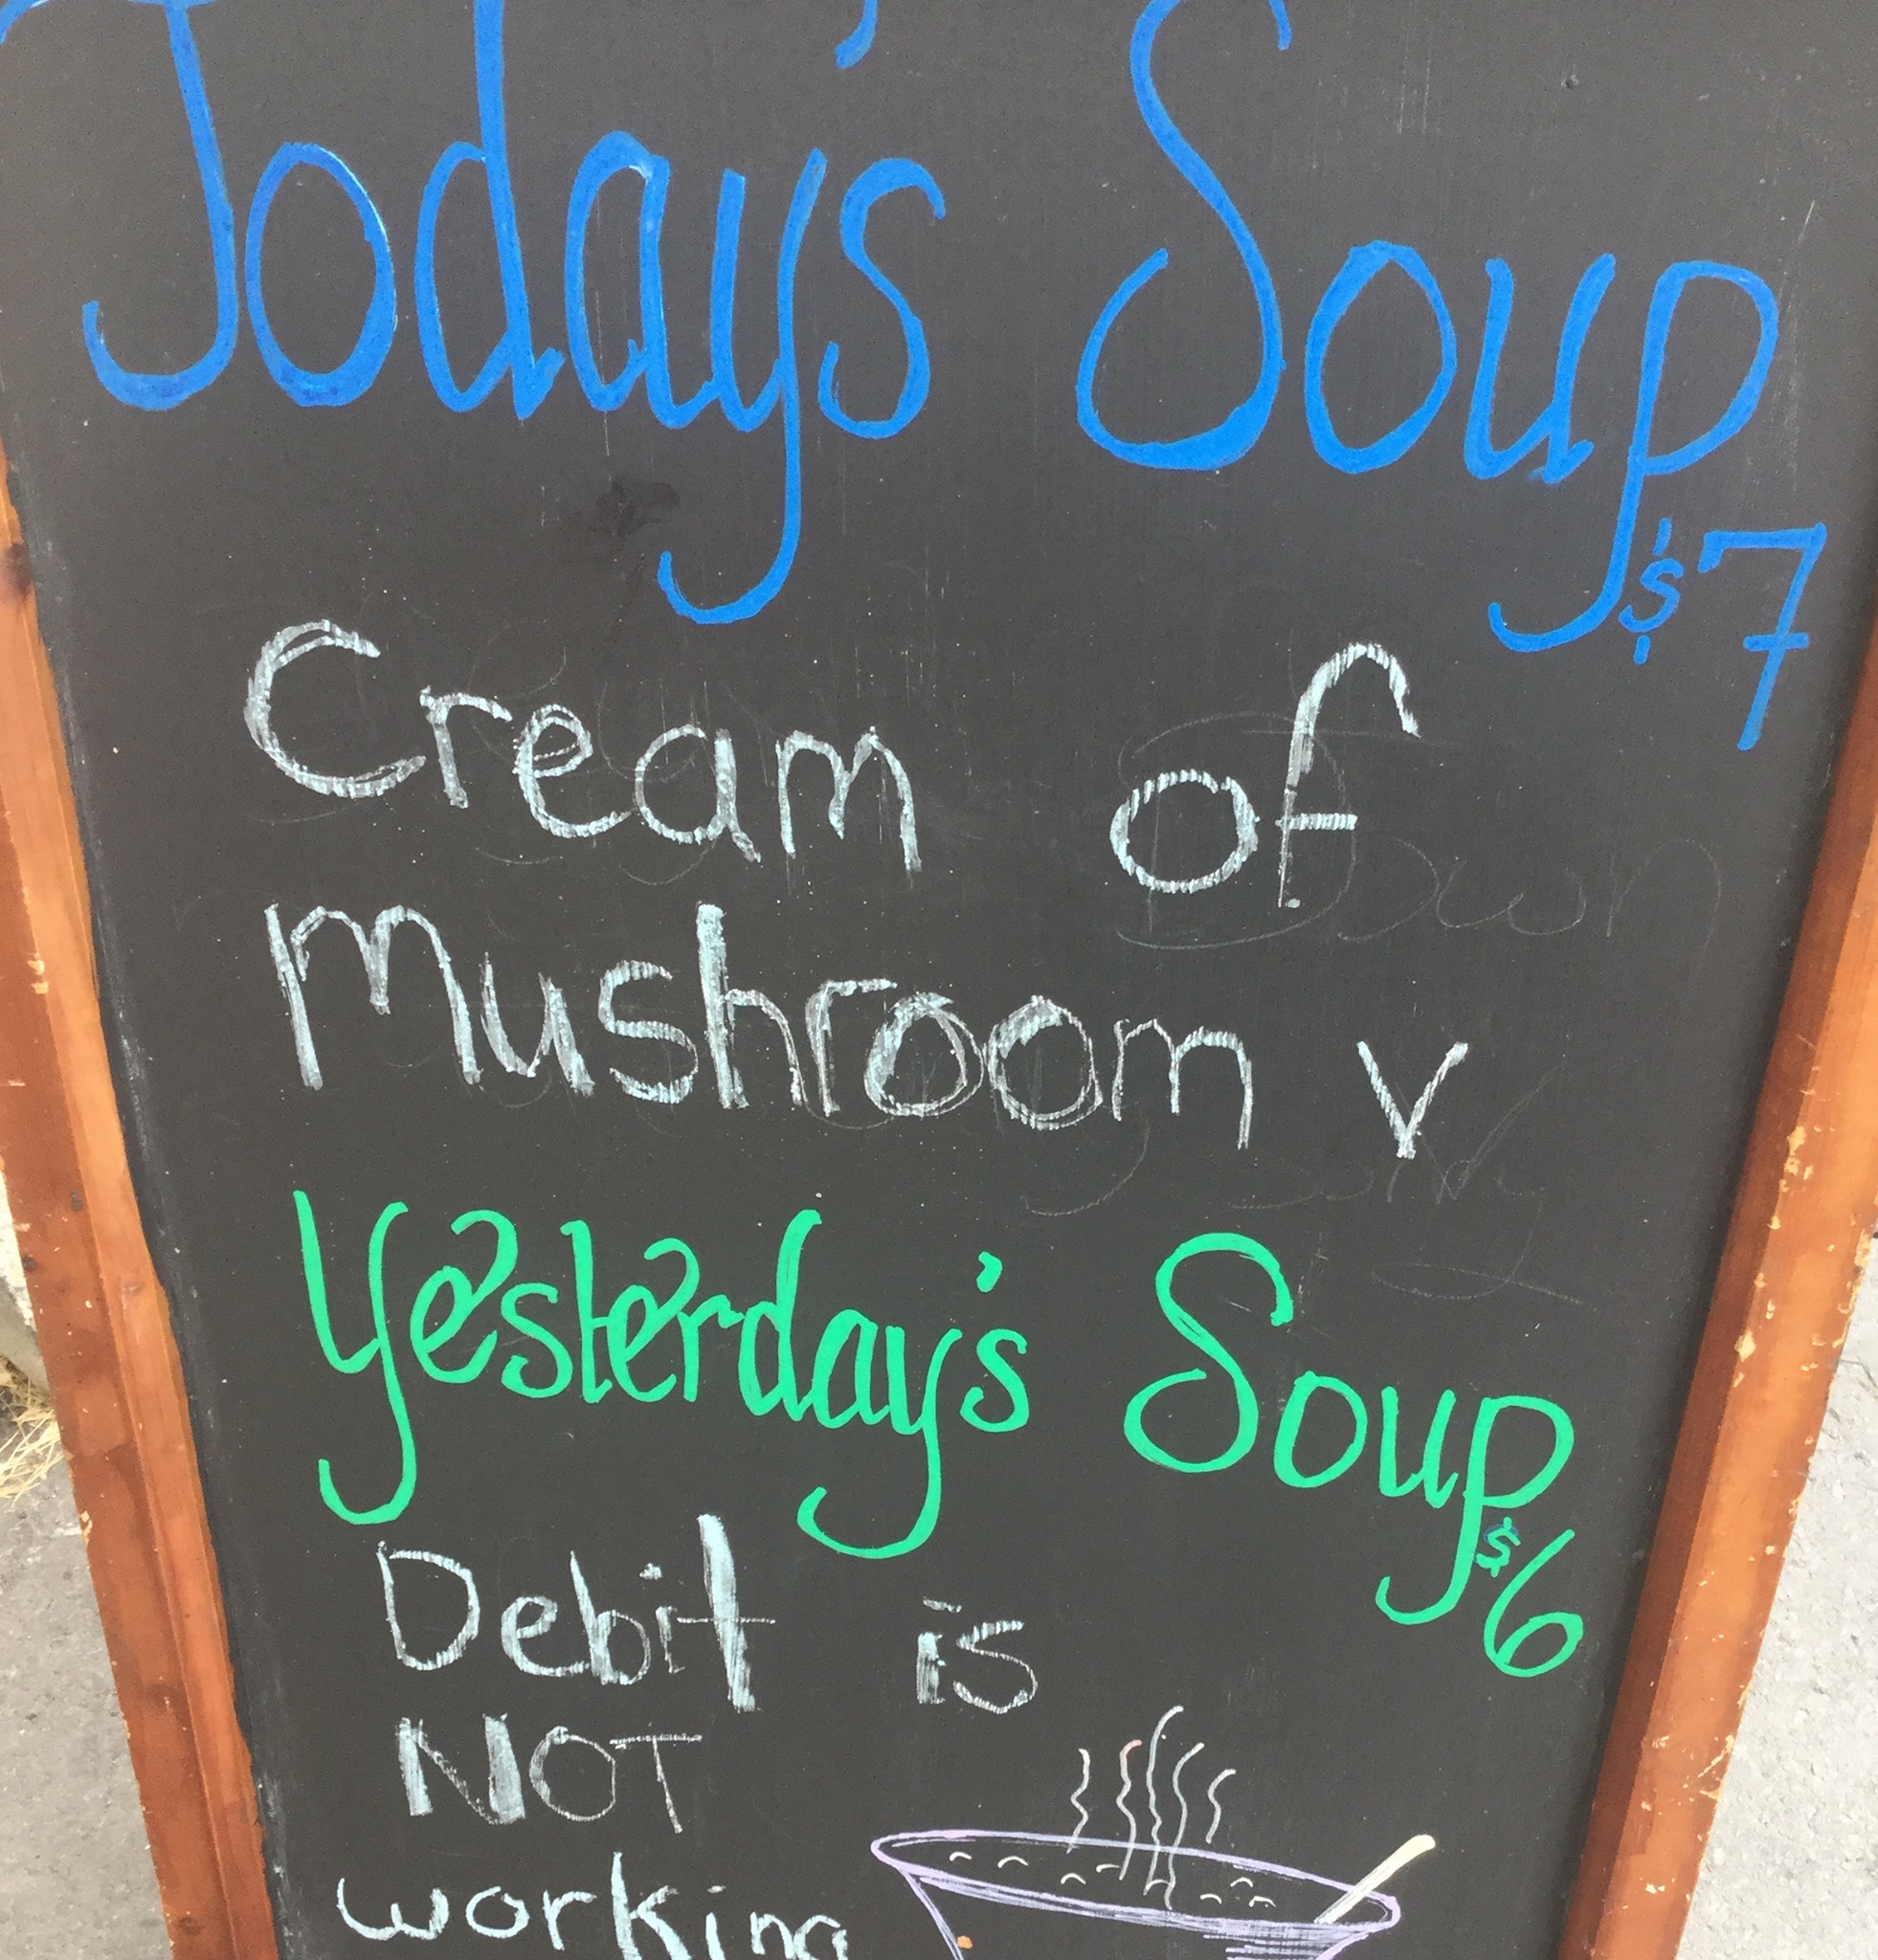 Today's Soup
$7
Cream of
Mushroom v
Yesterday's Soup
$6
Debit is
NOT
working